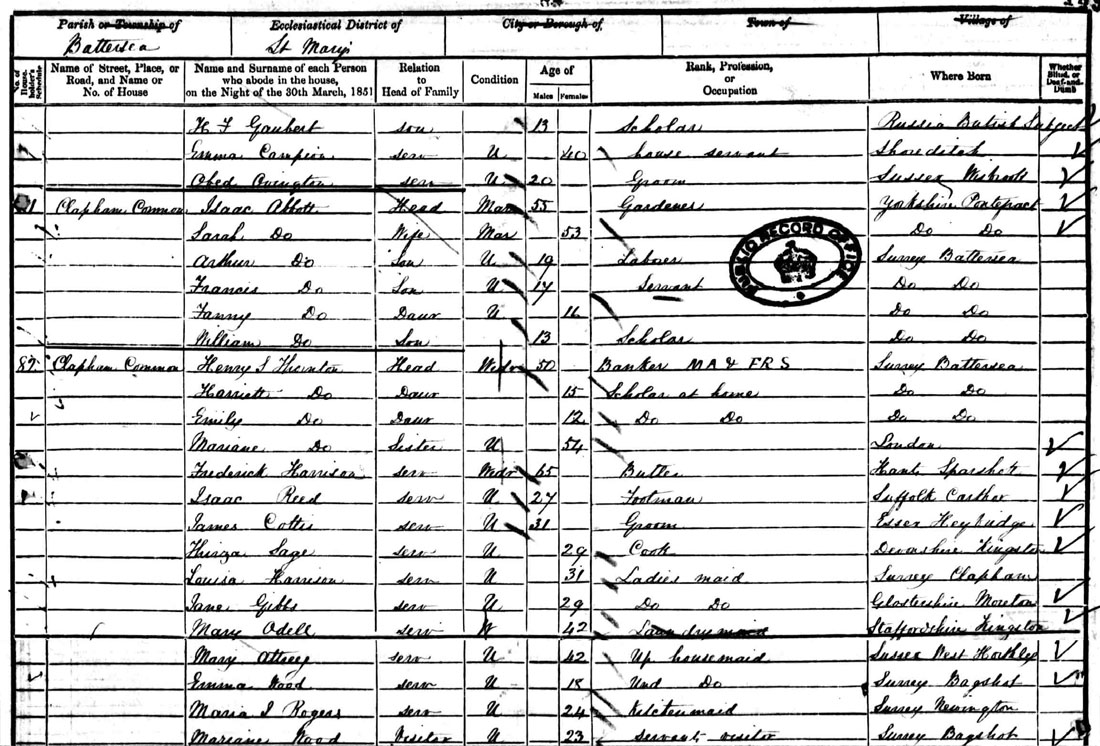 Parish or Township of Ecclesiastical District of City or Borough of Town of Village of
Battersea St Mary's
No. of House-holder's Schedule Name of Street, Place, or Road, and Name or No. of House Name and Surname of each Person who abode in the house, on the Night of the 30th March, 1851 Relation to Head of Family Condition Age of Males Females Rank, Profession, or Occupation Where Born Whether Blind, or Deaf-and-Dumb
H F Gaubert son 13 Scholar Russia British Subject
Emma Campion serv U 40 house servant Shoreditch
Obed Ovington serv U 20 Groom Sussex
81 Clapham Common Isaac Abbott Head Mar 55 Gardener Yorkshire Pontefract
Sarah Do Wife Mar 53 Do Do
Arthur Do Son U 19 Laborer Surrey Battersea
Francis Do Son U 17 Servant Do Do
Fanny Do Daur U 16 Do Do
William Do Son 13 Scholar Do Do
PUBLIC RECORD OFFICE
82 Clapham Common Henry S Thornton Head Widr 50 Banker MA & FRS Surrey Battersea
Harriett Do Daur 15 Scholar at home Do Do
Emily Do Daur 12 Do Do Do Do
Mariane Do Sister U 54 London
Frederick Harrison serv Widr 65 Butler Hants Sparshot
Isaac Reed serv U 27 Footman Suffolk
James Cottis serv U 31 Groom Essex Heybridge
Thirza Sage serv U 29 Cook Devonshire Kingston
Louisa Harrison serv U 31 Ladies maid Surrey Clapham
Jane Gibbs serv U 29 Do Do Glostershire Moreton
Mary Odell serv W 42 Laundrymaid Staffordshire Kingston
Mary Attree serv U 42 Up housemaid Sussex West Hoathley
Emma Wood serv U 18 Und Do Surrey Bagshot
Maria I Rogers serv U 24 Kitchenmaid Surrey Newington
Mariane Wood Visitor U 23 servant visitor Surrey Bagshot